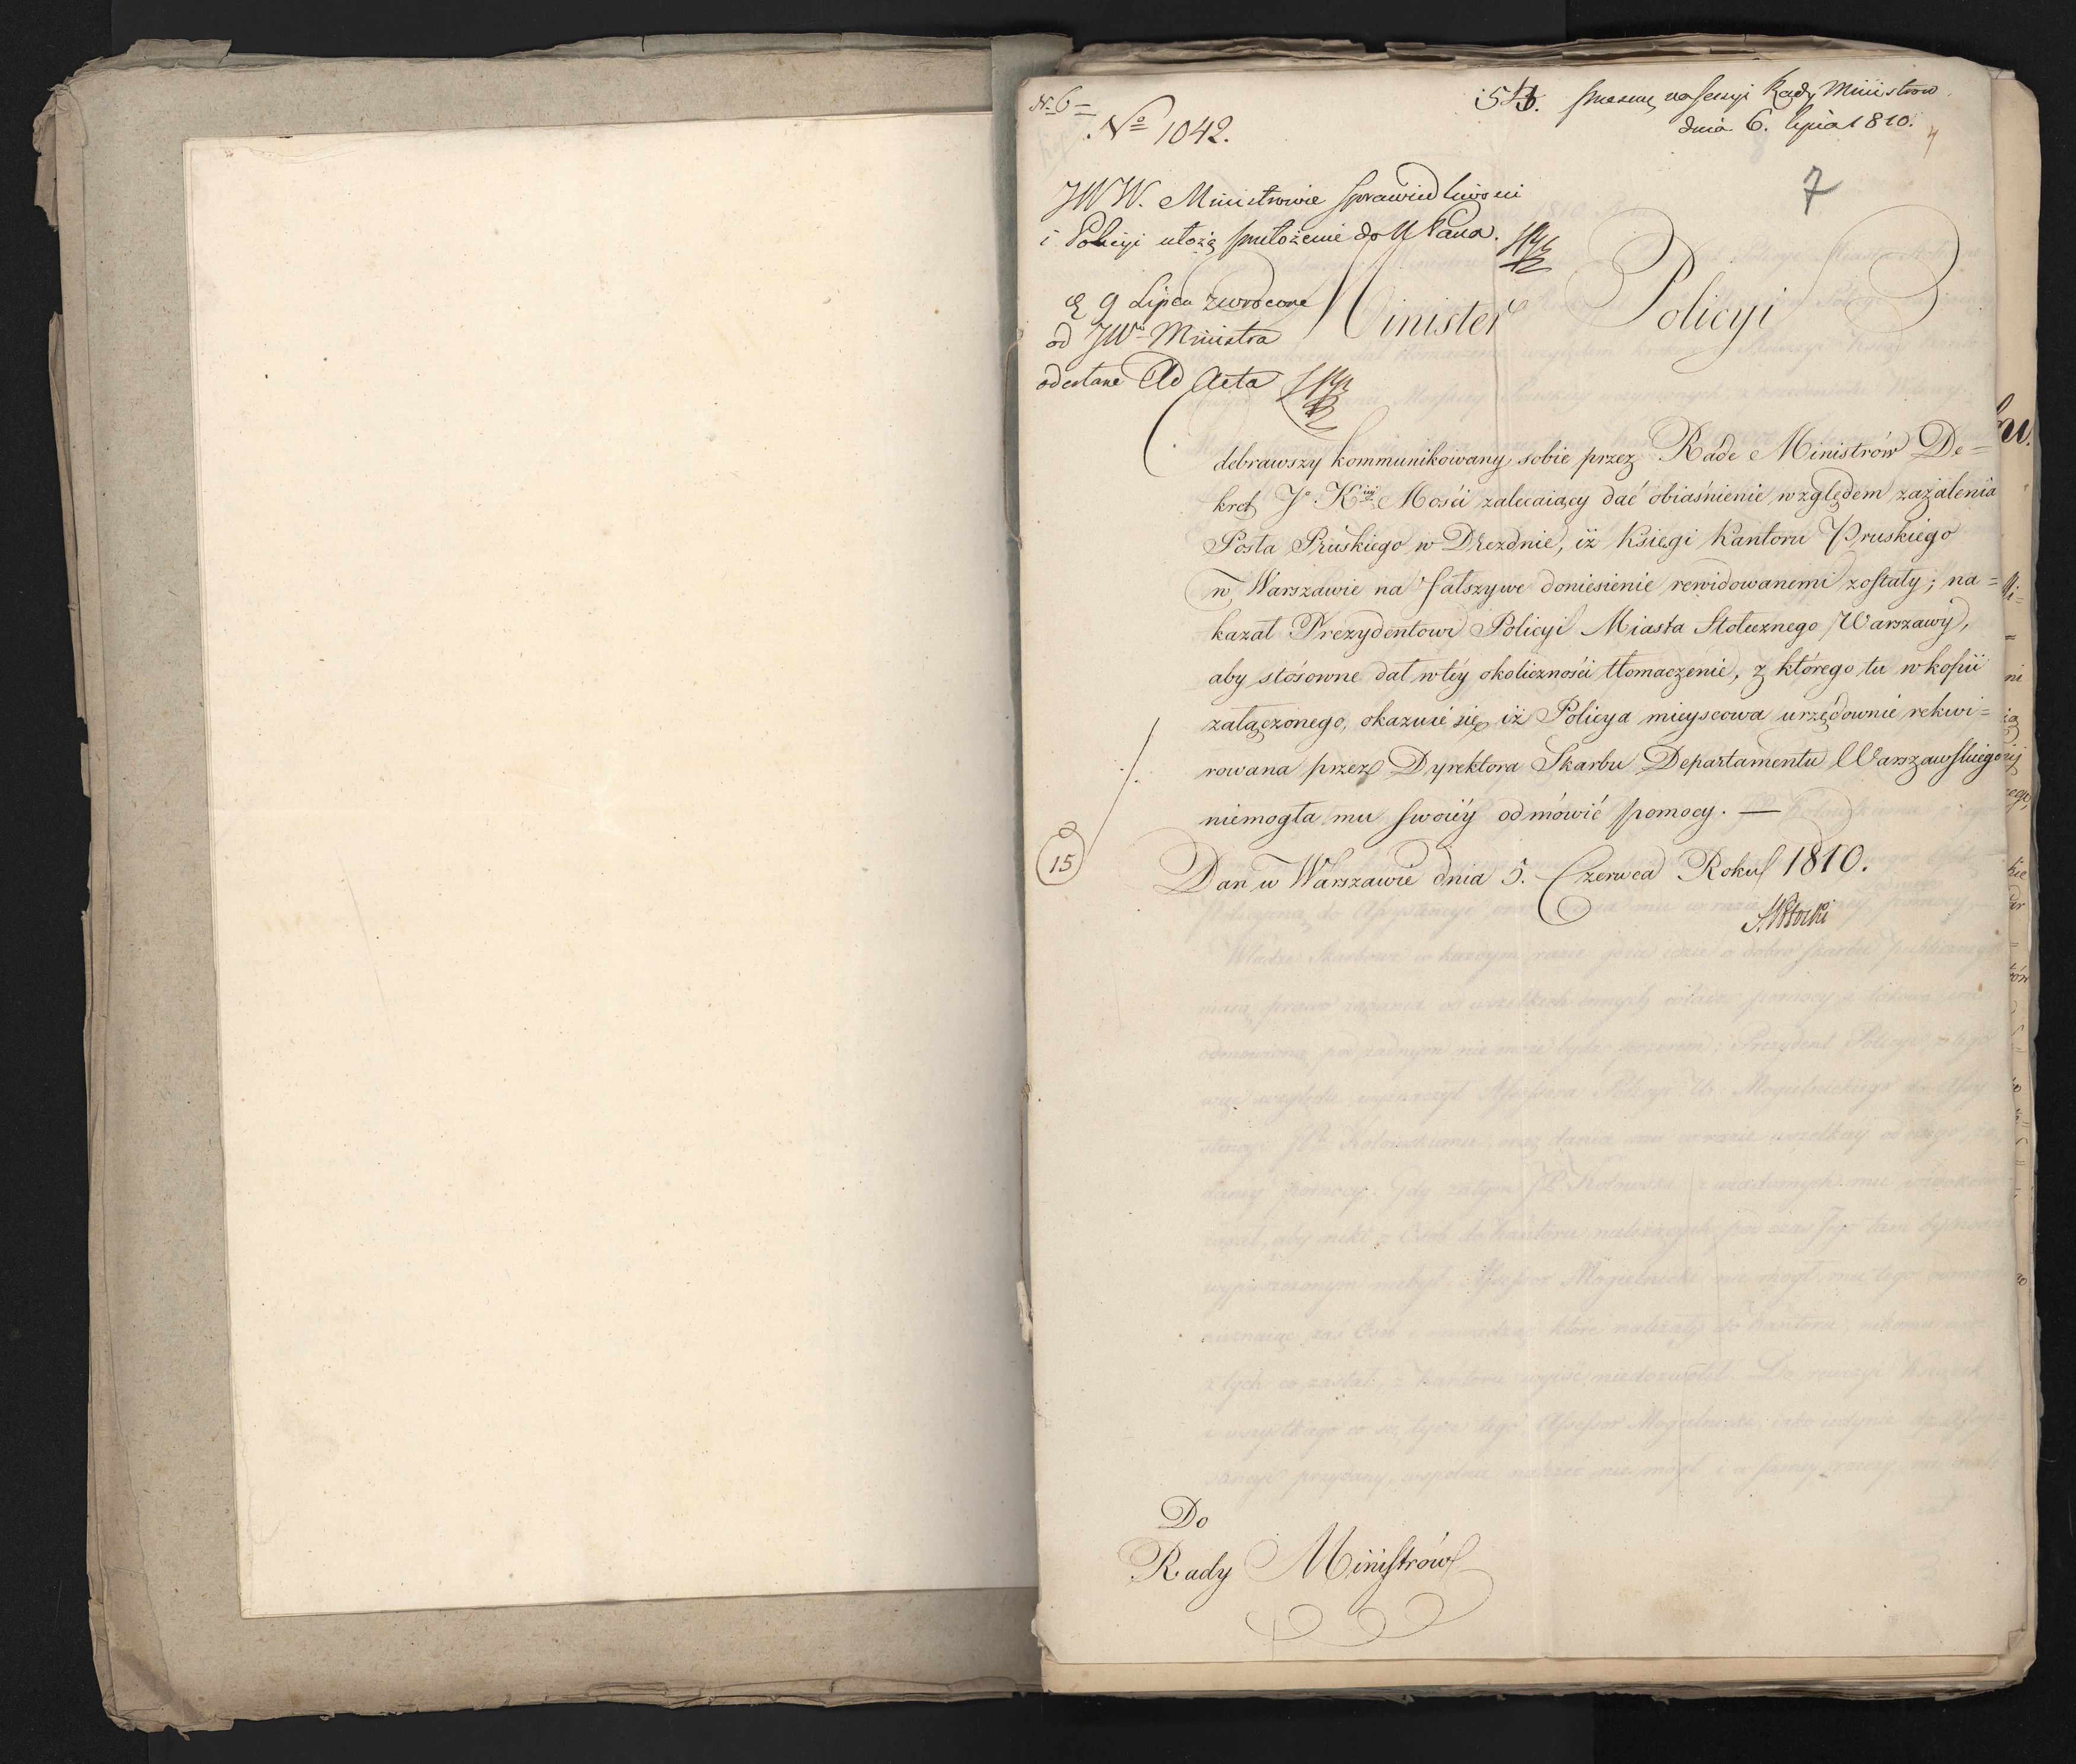 N. 6 =
No 1042.
na sessyi Rady Ministrow
dnia 6. lipca 1810.
7
JWW. Ministrowie Sprawiedliwosci
i Policyi ułożą do N Pana.
9 Lipca zwrocone
od JWo Ministra
odesłane Ad Acta
Minister Policyi
Odebrawszy kommunikowany sobie przez Radę Ministrów De=
kret Jo Kiéy Mości zalecaiący dać obiaśnienie względem zażalenia
Posła Pruskiego w Dreznie, iż Księgi Kantoru Pruskiego
w Warszawie na fałszywe doniesienie rewidowanemi zostały; na=
kazał Prezydentowi Policyi Miasta Stołecznego Warszawy,
aby stósowne dał w téy okoliczności tłomaczenie, z którego tu w kopii
załączonego, okazuie się iż Policya mieyscowa urzędownie rekwi=
rowana przez Dyrektora Skarbu Departamentu Warszawskiego
niemogła mu swoiéy odmówić pomocy. —
15
Dan w Warszawie dnia 5. Czerwca Roku 1810.
S. Potocki
Do
Rady Ministrów